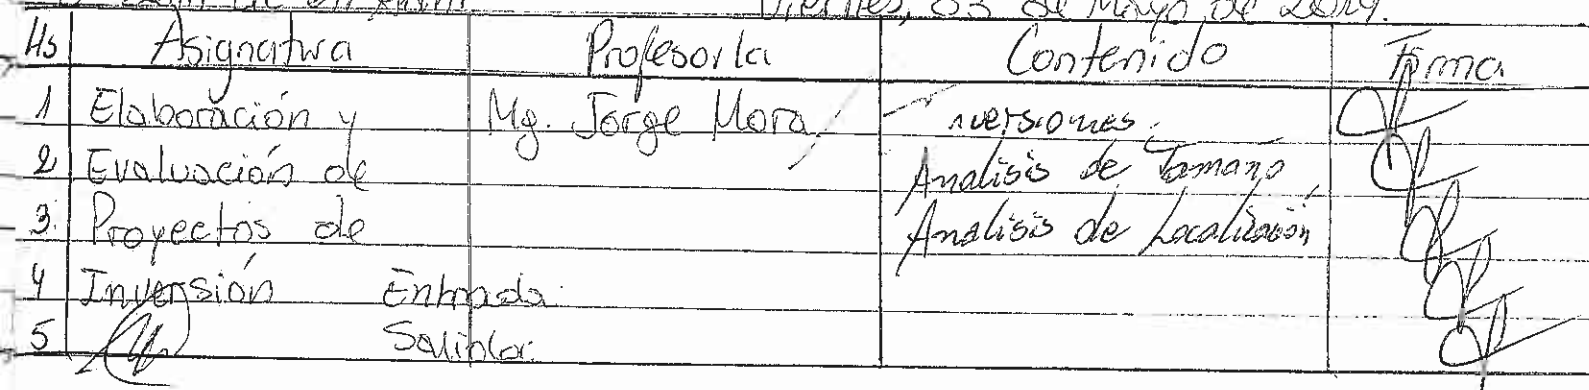 Viernes, 03 de Mayo de 2019.
Hs Asignatura Profesor/a Contenido Firma
1 Elaboración y Mg. Jorge Mora nversiones.
2 Evaluación de Analisis de Tamano
3. Proyectos de Analisis de Localización
4 Inversión Entrada
5 Salida